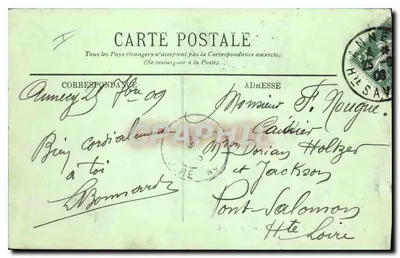 CARTE POSTALE
Tous les Pays étrangers n'acceptent pas la Correspondance au recto.
(Se renseigner à la Poste).
CORRESPONDANCE
ADRESSE
Annecy 25 9bre 09
Bien cordialement
à toi
LBonnard
Monsieur F. Nouque
Caissier
Mon Dorian Holtzer
et Jackson
Pont-Salomon
Hte Loire
ANNE
Hte SAV